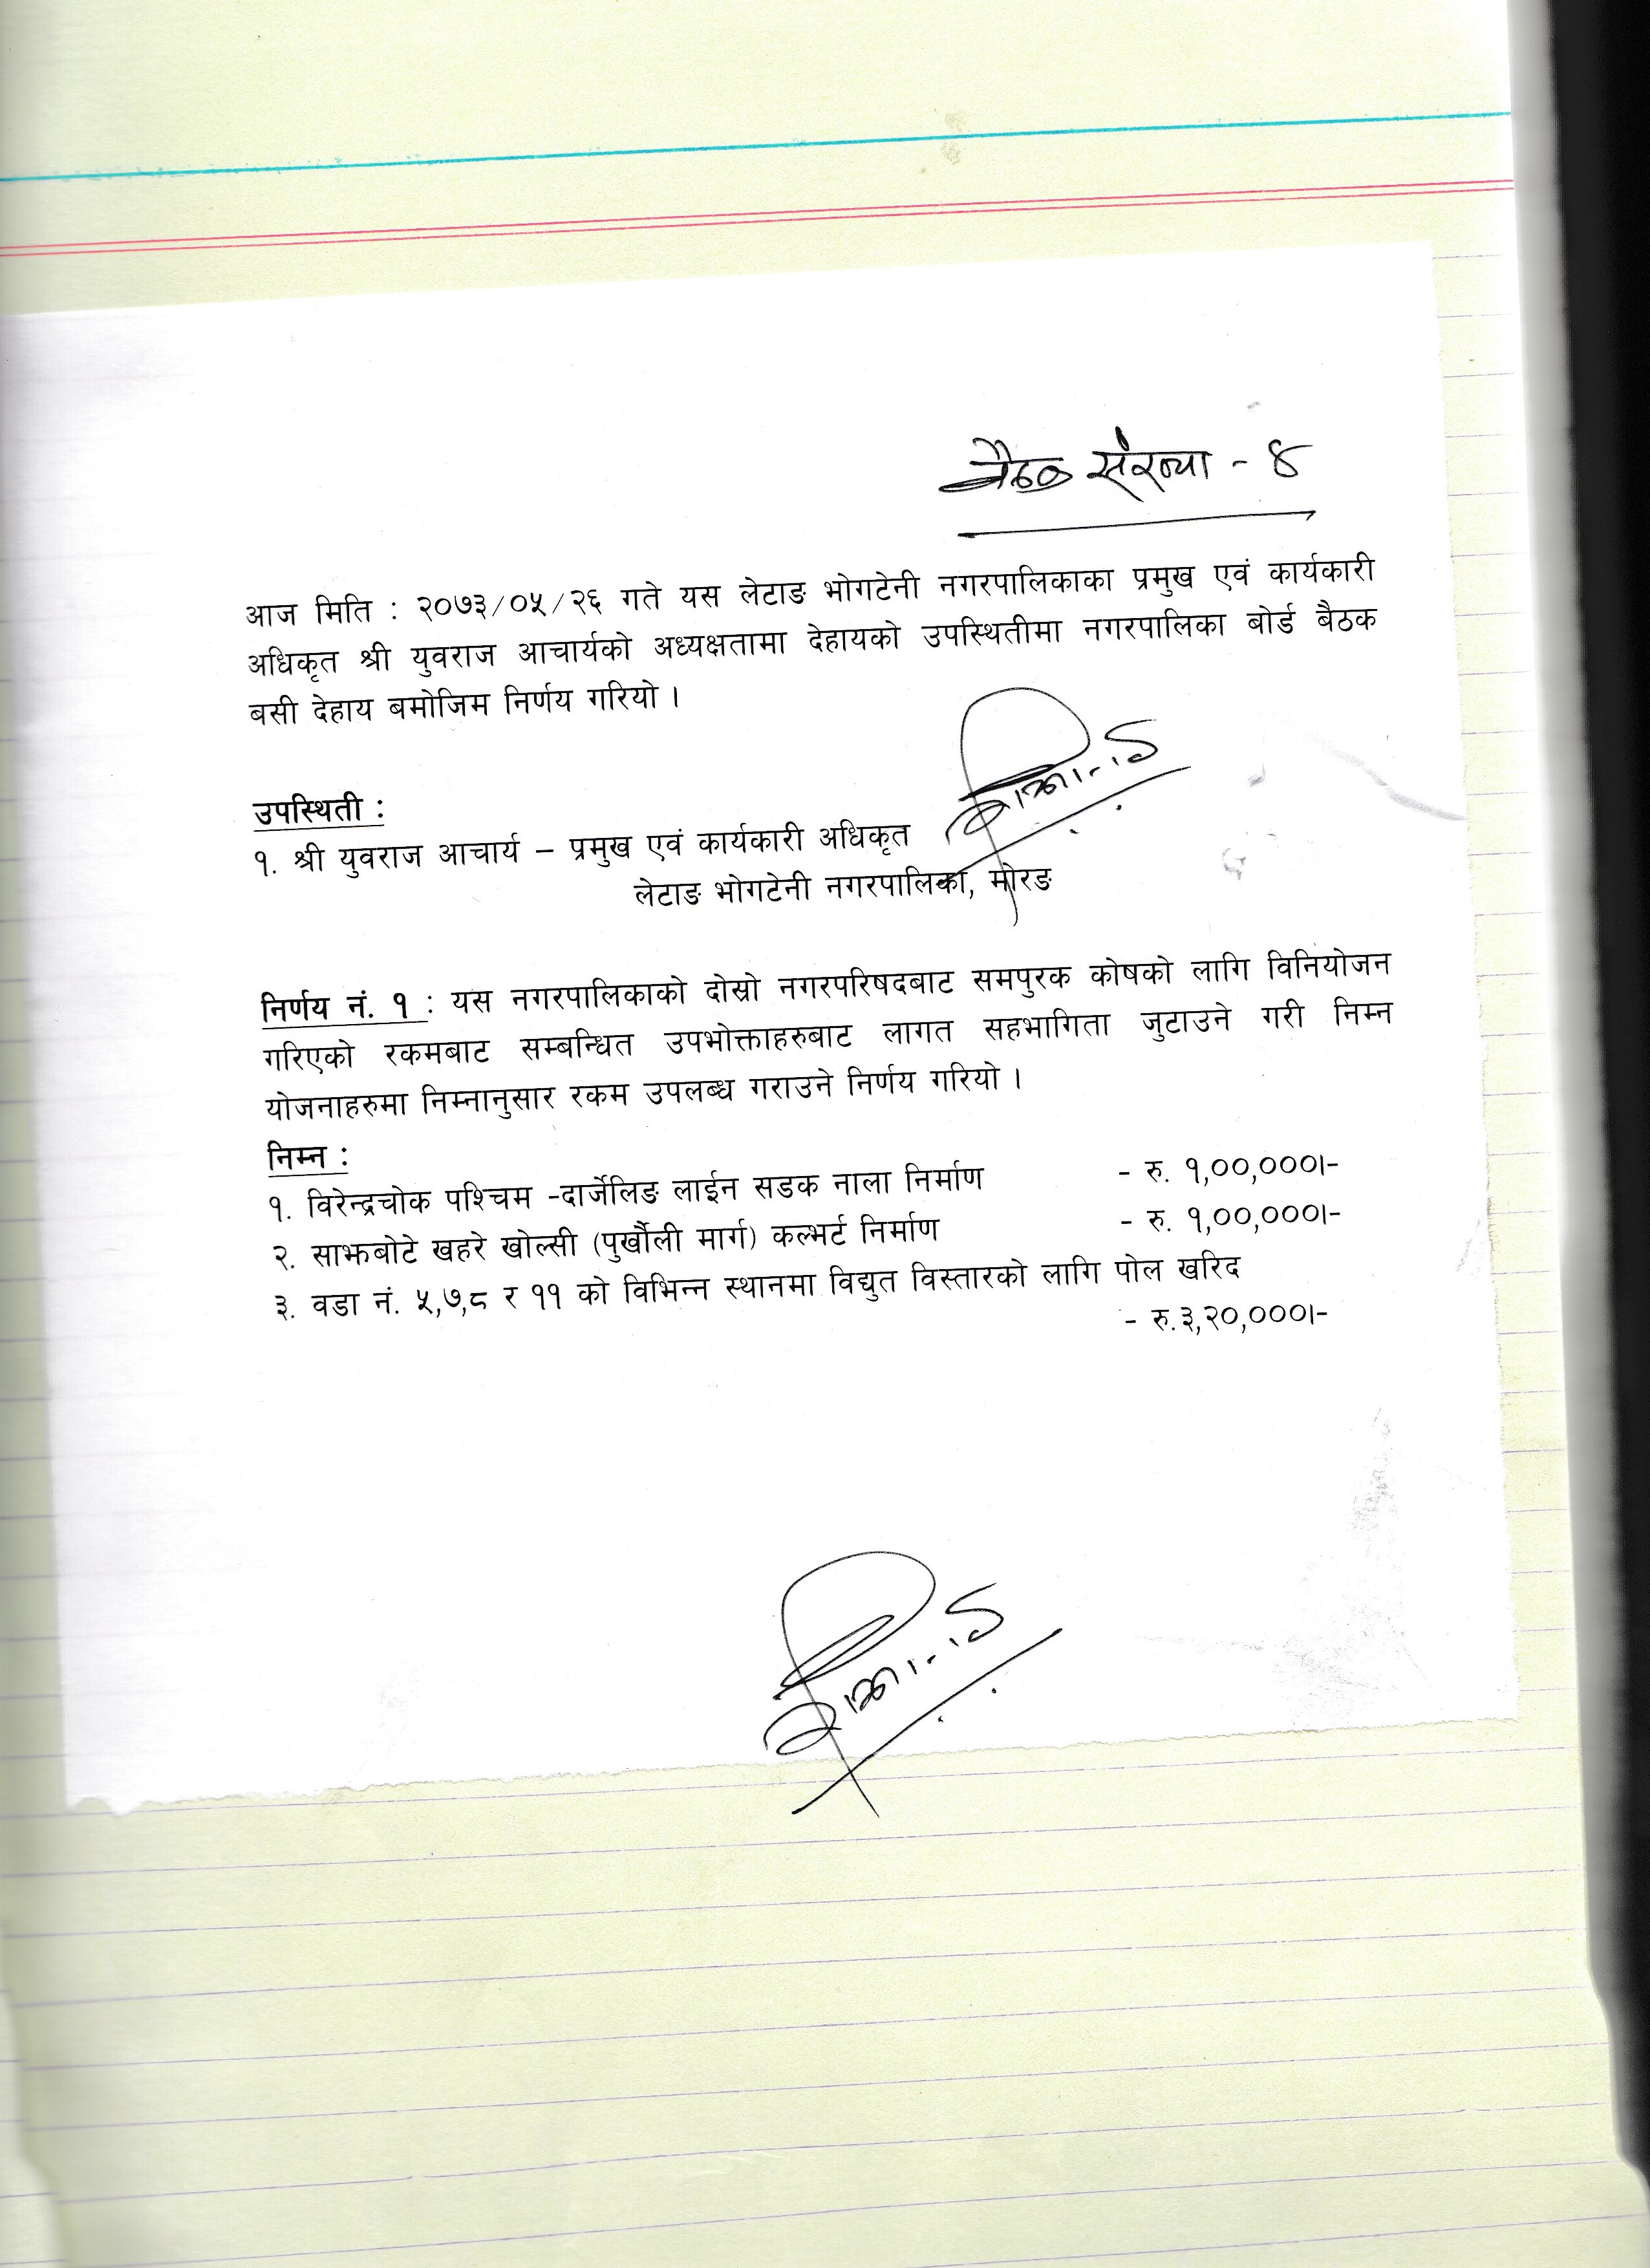 बैठक संख्या - ४
आज मिति : २०७३/०५/२६ गते यस लेटाङ भोगटेनी नगरपालिकाका प्रमुख एवं कार्यकारी
अधिकृत श्री युवराज आचार्यको अध्यक्षतामा देहायको उपस्थितीमा नगरपालिका बोर्ड बैठक
बसी देहाय बमोजिम निर्णय गरियो ।
उपस्थिती :
१. श्री युवराज आचार्य – प्रमुख एवं कार्यकारी अधिकृत
लेटाङ भोगटेनी नगरपालिका, मोरङ
निर्णय नं. १ : यस नगरपालिकाको दोस्रो नगरपरिषदबाट समपुरक कोषको लागि विनियोजन
गरिएको रकमबाट सम्बन्धित उपभोक्ताहरुबाट लागत सहभागिता जुटाउने गरी निम्न
योजनाहरुमा निम्नानुसार रकम उपलब्ध गराउने निर्णय गरियो ।
निम्न :
१. विरेन्द्रचोक पश्चिम -दार्जेलिङ लाईन सडक नाला निर्माण - रु. १,००,०००।-
२. साझबोटे खहरे खोल्सी (पुर्खौली मार्ग) कल्भर्ट निर्माण - रु. १,००,०००।-
३. वडा नं. ५,७,८ र ११ को विभिन्न स्थानमा विद्युत विस्तारको लागि पोल खरिद
- रु.३,२०,०००।-